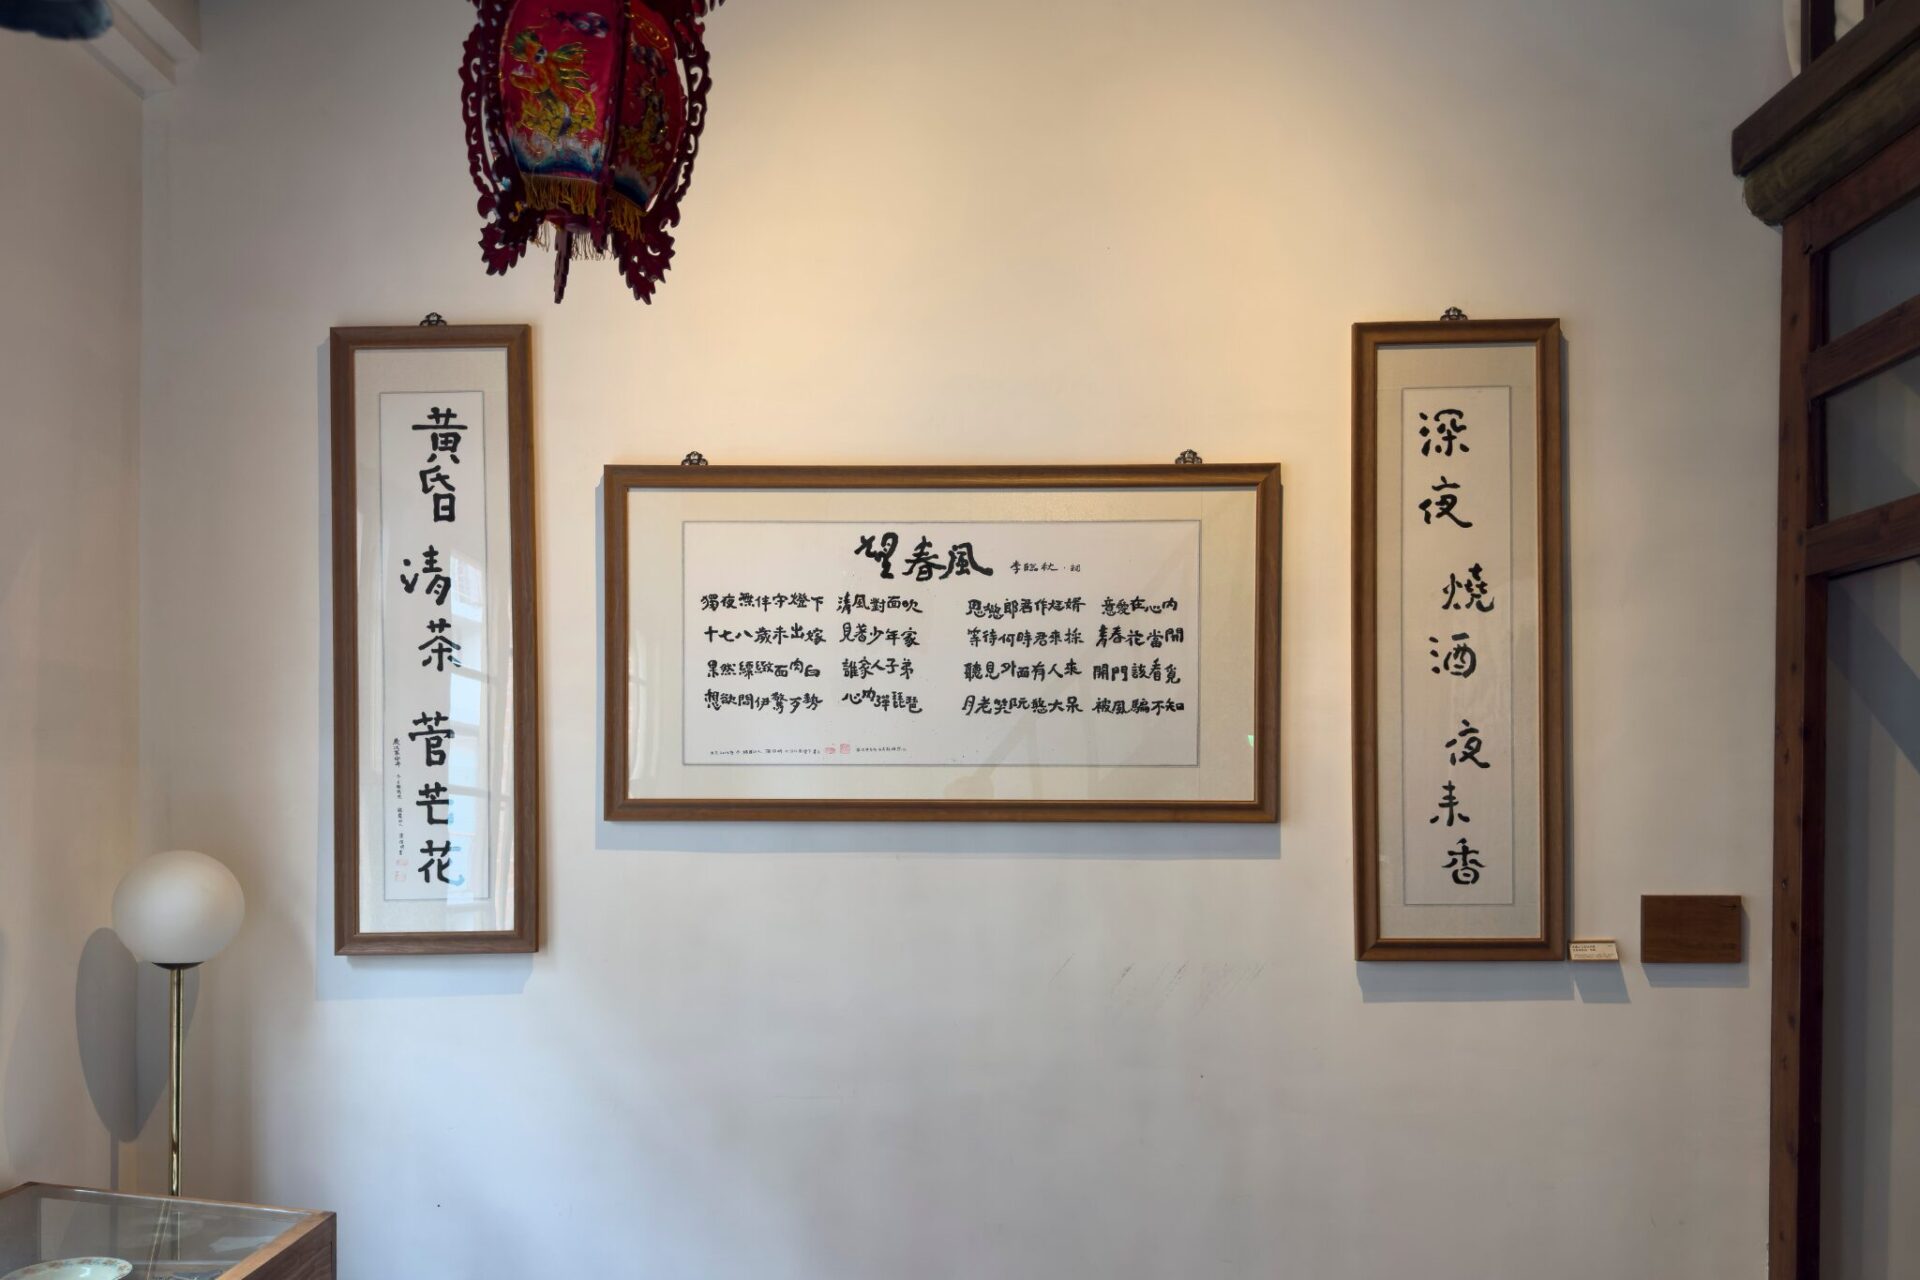 黃昏清茶菅芒花
望春風 李臨秋·詞
獨夜無伴守燈下 清風對面吹
十七八歲未出嫁 見著少年家
果然縹緻面肉白 誰家人子弟
想欲問伊驚歹勢 心內彈琵琶
思慾郎君作尪婿 意愛在心內
等待何時君來採 青春花當開
聽見外面有人來 開門該看覓
月老笑阮憨大呆 被風騙不知
深夜燒酒夜來香